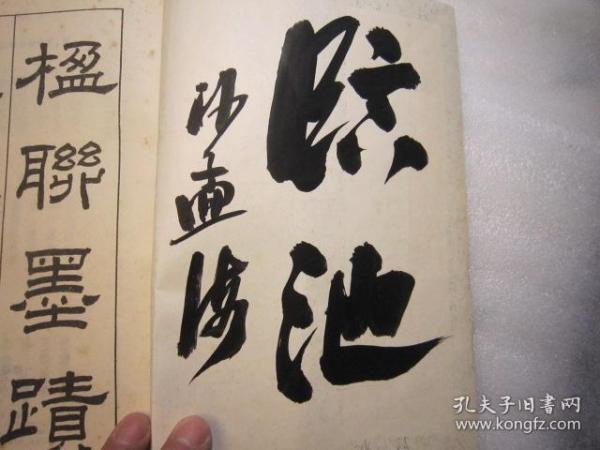 臨池
沙孟海
楹聯墨蹟
孔夫子旧書网
www.kongfz.com